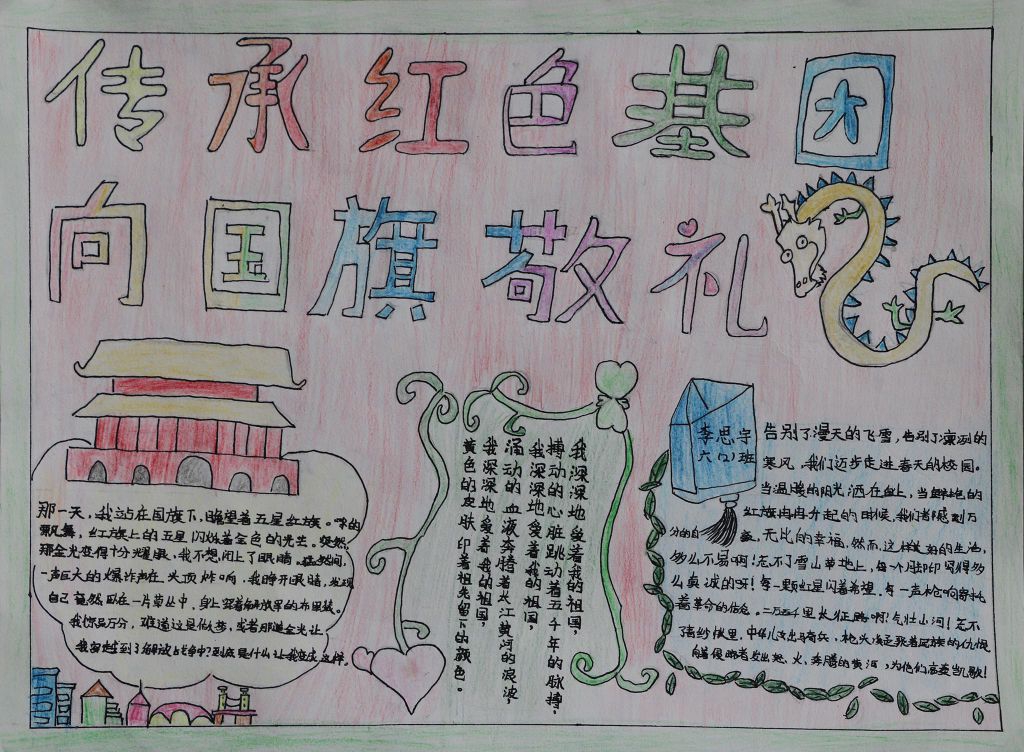 传承红色基因
向国旗敬礼
李思宇
六(2)班
那一天，我站在国旗下，瞻望着五星红旗。
飘舞，红旗上的五星闪烁着金色的光芒。突然，
那金光变得十分耀眼，我不想闭上了眼睛，在然间，
一声巨大的爆炸声在头顶炸响，我睁开眼睛，发现
自己竟然趴在一片草丛中，身上穿着解放军的布军装。
我惊异万分，难道这是做梦，或者那道金光让
我穿越到了解放战争中？到底是什么让我变成这样。
我深深地爱着我的祖国，
搏动的心脏跳动着五千年的脉搏，
我深深地爱着我的祖国，
涌动的血液奔腾着长江黄河的浪波，
我深深地爱着我的祖国，
黄色的皮肤印着祖先留下的颜色。
告别了漫天的飞雪，告别了凛冽的
寒风，我们迈步走进春天的校园。
当温暖的阳光洒在血上，当鲜艳的
红旗冉冉升起的时候，我们都感到万
分的自豪，无比的幸福，然而，这样美好的生活，
多么不易啊！忘不了雪山草地上，每一个脚印写得多
么真诚的呀！每一颗红星闪着希望，每一声枪响寄托
着革命的信念。二万五千里长征路啊！气壮山河！忘不
了青纱帐里，中华儿女出奇兵，枪头凝聚着民族的仇恨
向着侵略者发出怒火，奔腾的黄河，为他们高奏凯歌！